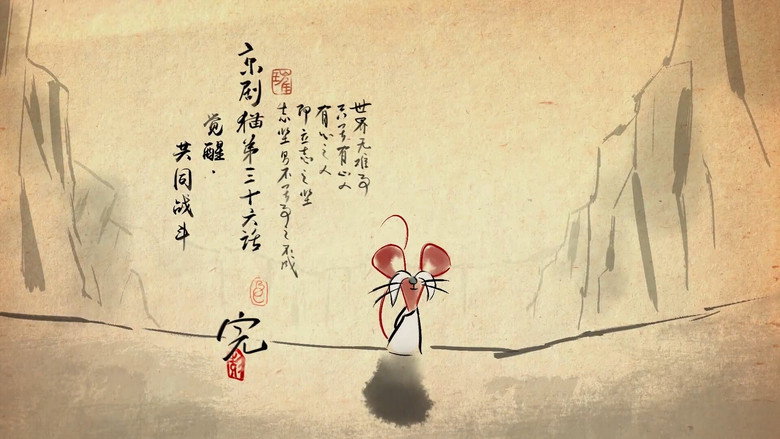 世界无难事
只畏有心人
有心之人
即立志之坚
志坚则不畏事之不成
京剧猫第三十六话
觉醒·
共同战斗
完